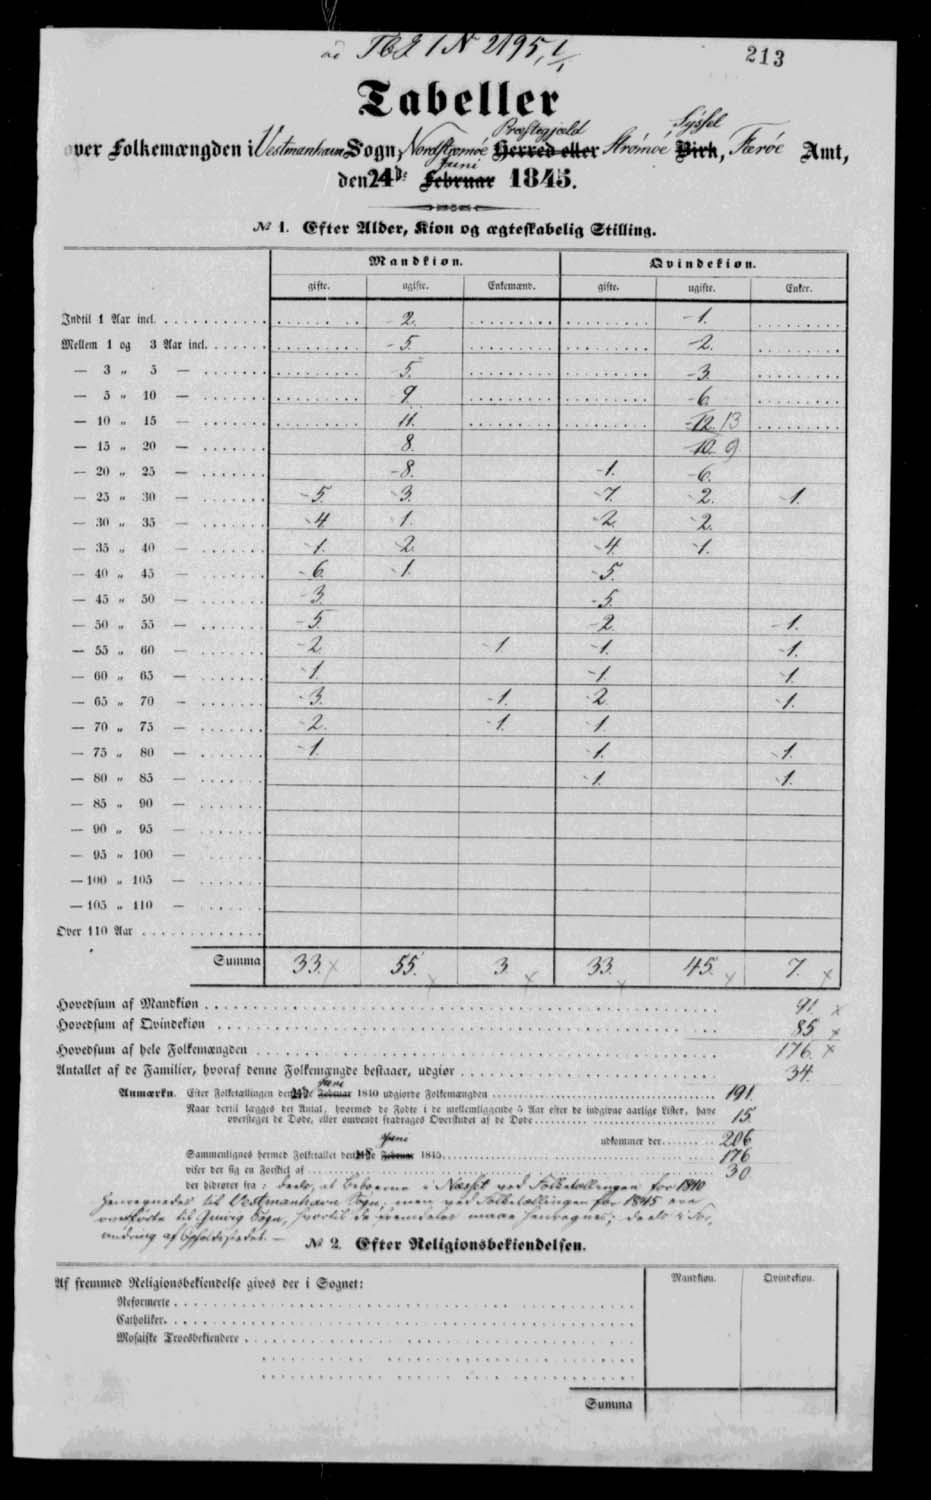 ad TBJ 1 N 2195, 1/1
213
Tabeller
Præstegjæld Sýssel
over Folkemængden i Vestmanhavn Sogn, Nordstrømöe Herred eller Strömöe Birk, Færöe Amt,
Juni
den 24de Februar 1845.
№ 1. Efter Alder, Kion og ægteskabelig Stilling.
Mandkion. Qvindekion.
gifte. ugifte. Enkemænd. gifte. ugifte. Enker.
Indtil 1 Aar incl. 2. 1.
Mellem 1 og 3 Aar incl. 5. 2.
— 3 „ 5 — 5. 3.
— 5 „ 10 — 9. 6.
— 10 „ 15 — 11. 12. 13
— 15 „ 20 — 8. 10. 9
— 20 „ 25 — 8. 1. 6.
— 25 „ 30 — 5. 3. 7. 2. 1.
— 30 „ 35 — 4. 1. 2. 2.
— 35 „ 40 — 1. 2. 4. 1.
— 40 „ 45 — 6. 1. 5.
— 45 „ 50 — 3. 5.
— 50 „ 55 — 5. 2. 1.
— 55 „ 60 — 2. 1. 1. 1.
— 60 „ 65 — 1. 1. 1.
— 65 „ 70 — 3. 1. 2. 1.
— 70 „ 75 — 2. 1. 1.
— 75 „ 80 — 1. 1. 1.
— 80 „ 85 — 1. 1.
— 85 „ 90 —
— 90 „ 95 —
— 95 „ 100 —
— 100 „ 105 —
— 105 „ 110 —
Over 110 Aar
Summa 33. 55. 3. 33. 45. 7.
Hovedsum af Mandkion 91.
Hovedsum af Qvindekion 85
Hovedsum af hele Folkemængden 176.
Antallet af de Familier, hvoraf denne Folkemængde bestaaer, udgiør 34.
Juni
Anmærkn. Efter Folketallingen den 24de Februar 1840 udgiorde Folkemængden 191.
Naar dertil lægges det Antal, hvormed de Fødte i de mellemliggende 5 Aar efter de indgivne aarlige Lister, have
oversteget de Døde, eller omvendt fradrages Overskudet af de Døde 15.
udkommer der 206
Juni
Sammenlignes hermed Folketallet den 24de Februar 1845 176
viser der sig en Forskiel af 30
der hidrører fra: deels, at Beboerne i Næsset ved Folketællingen for 1840
henregnedes til Vestmanhavn Sogn, men ved Folketællingen for 1845 ere
Qvivig Sogn, hvortil de fremdeles maae henregnes; deels i For,
andring af Opholdsstedet. —
№ 2. Efter Religionsbekiendelsen.
Af fremmed Religionsbekiendelse gives der i Sognet: Mandkion. Qvindekion.
Reformerte
Catholiker
Mosaiske Troesbekiendere
Summa